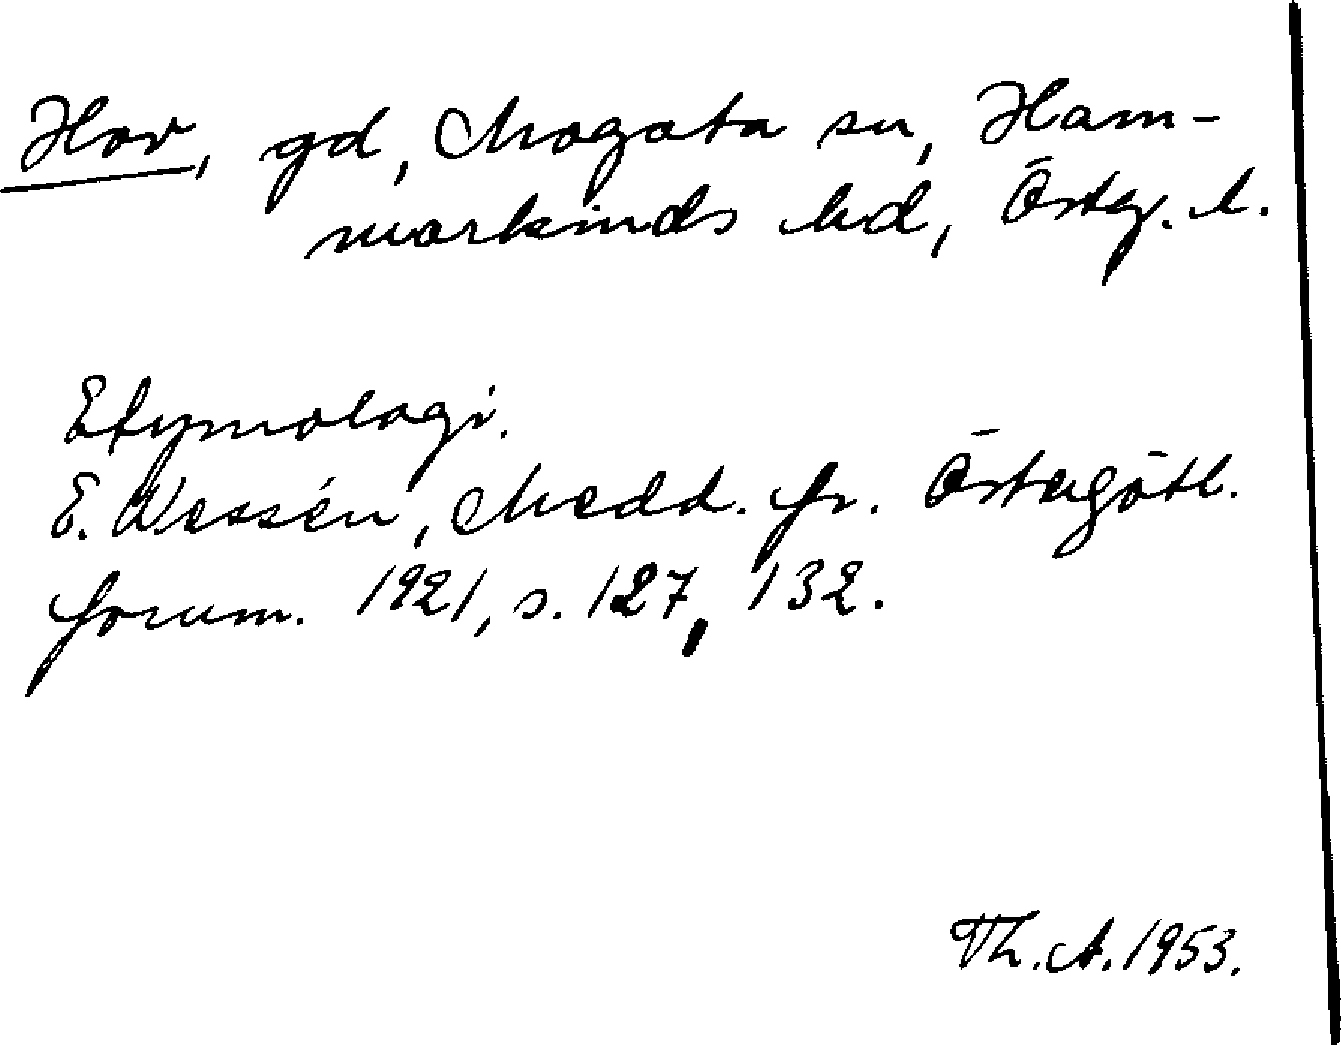 Hov, gd, Mogata sn, Ham-
markinds hd, Östg. l.
Etymologi.
E. Wessén, Medd. fr. Östergötl.
fornm. 1921, s. 127, 132.
Th. A. 1953.